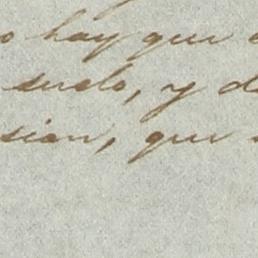 o hay que
suelo, y d
sion, que